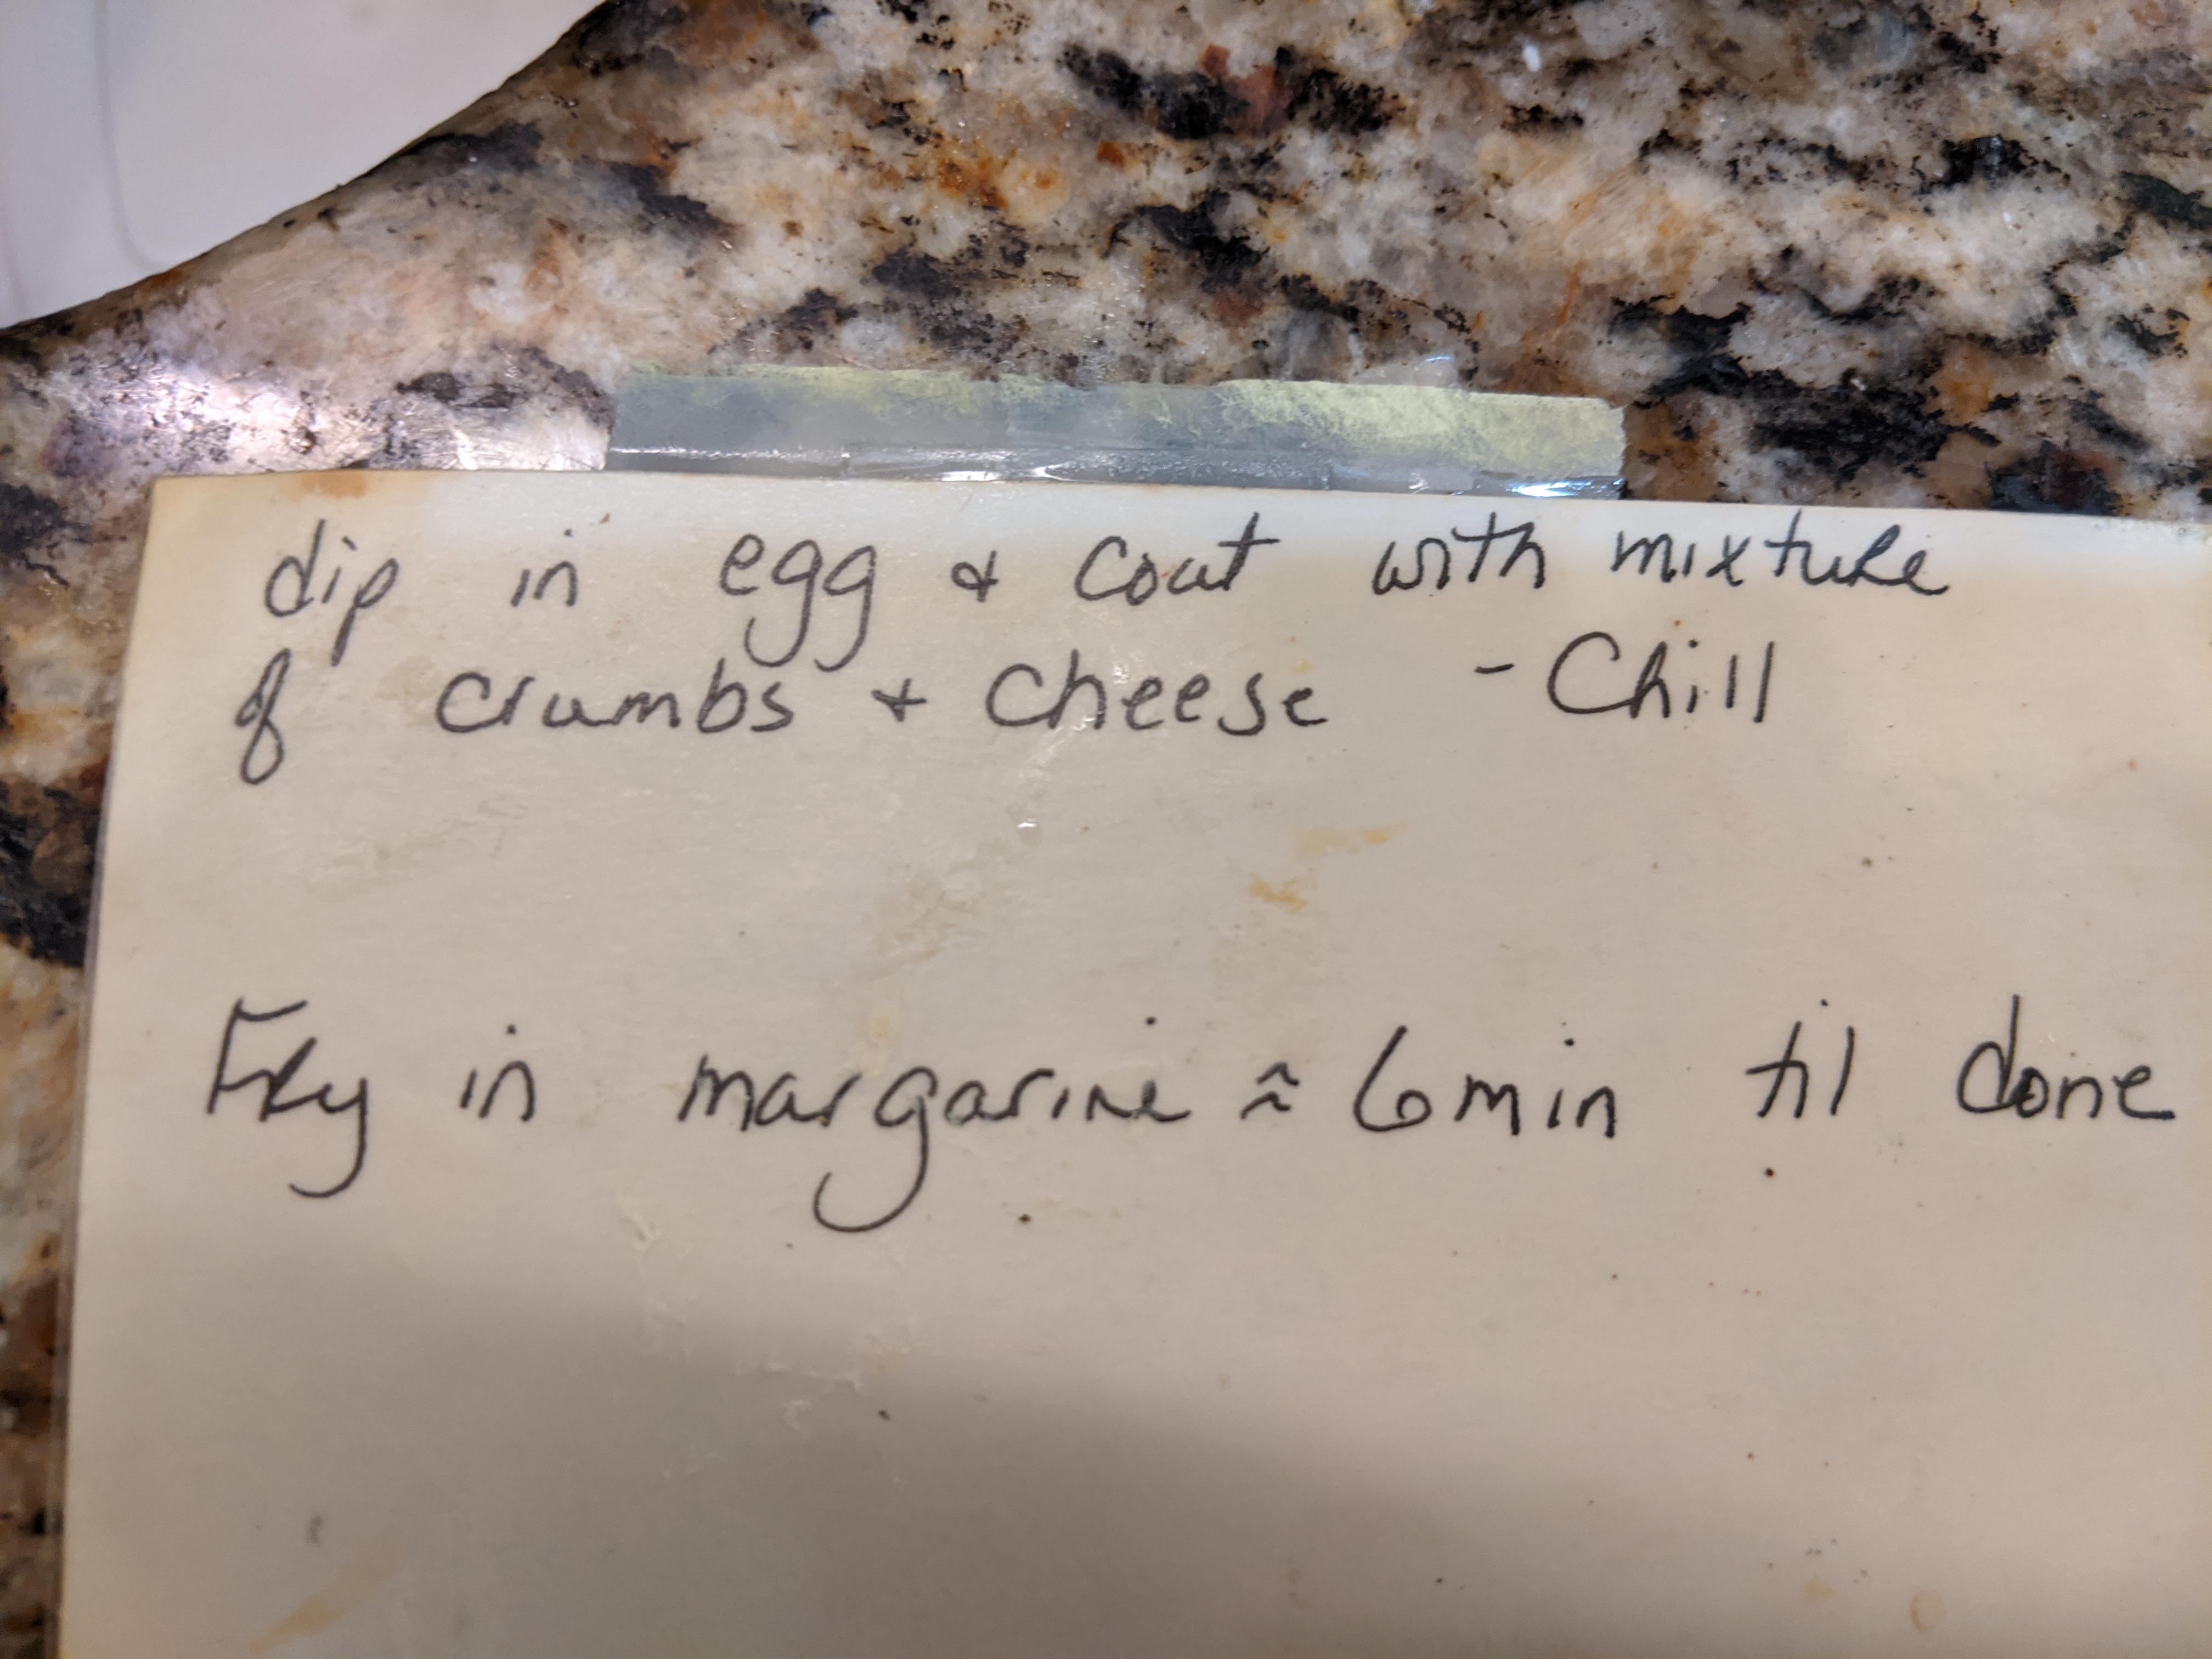 dip in egg & coat with mixture
of crumbs & cheese - Chill
Fry in margarine ≈ 6 min til done